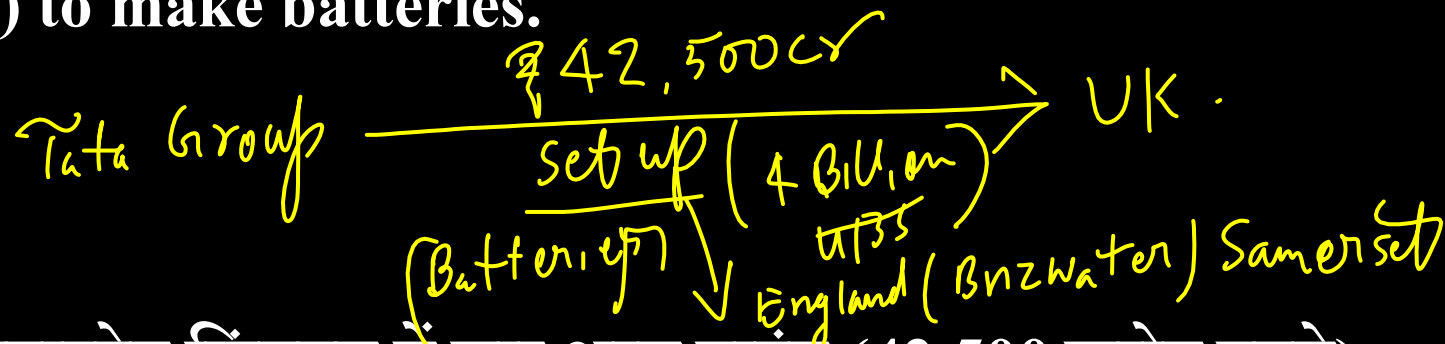 ) to make batteries.
₹42,500cr
Tata Group UK.
Set up (4 Billion)
(Batteries)
England (Brizwater) Samerset
(42,500